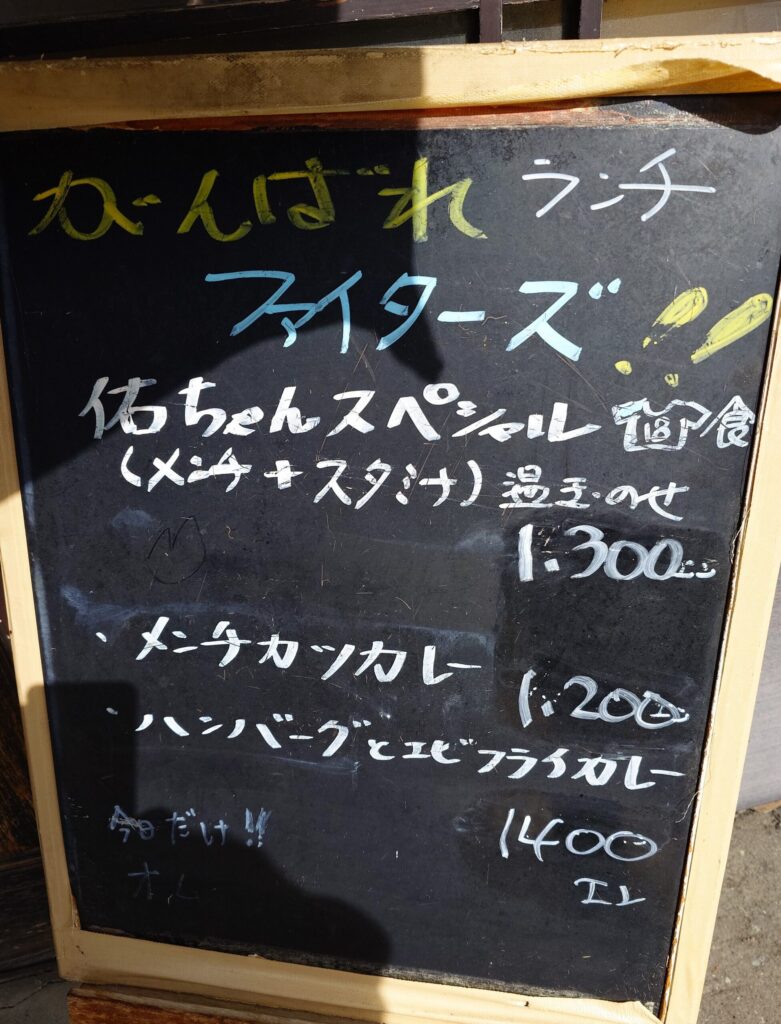 がんばれ ランチ
ファイターズ!!
佑ちゃんスペシャル 18 食
(メンチ+スタミナ) 温玉のせ
1.300
・メンチカツカレー
1.200
・ハンバーグとエビフライカレー
今日だけ!!
1400
エン